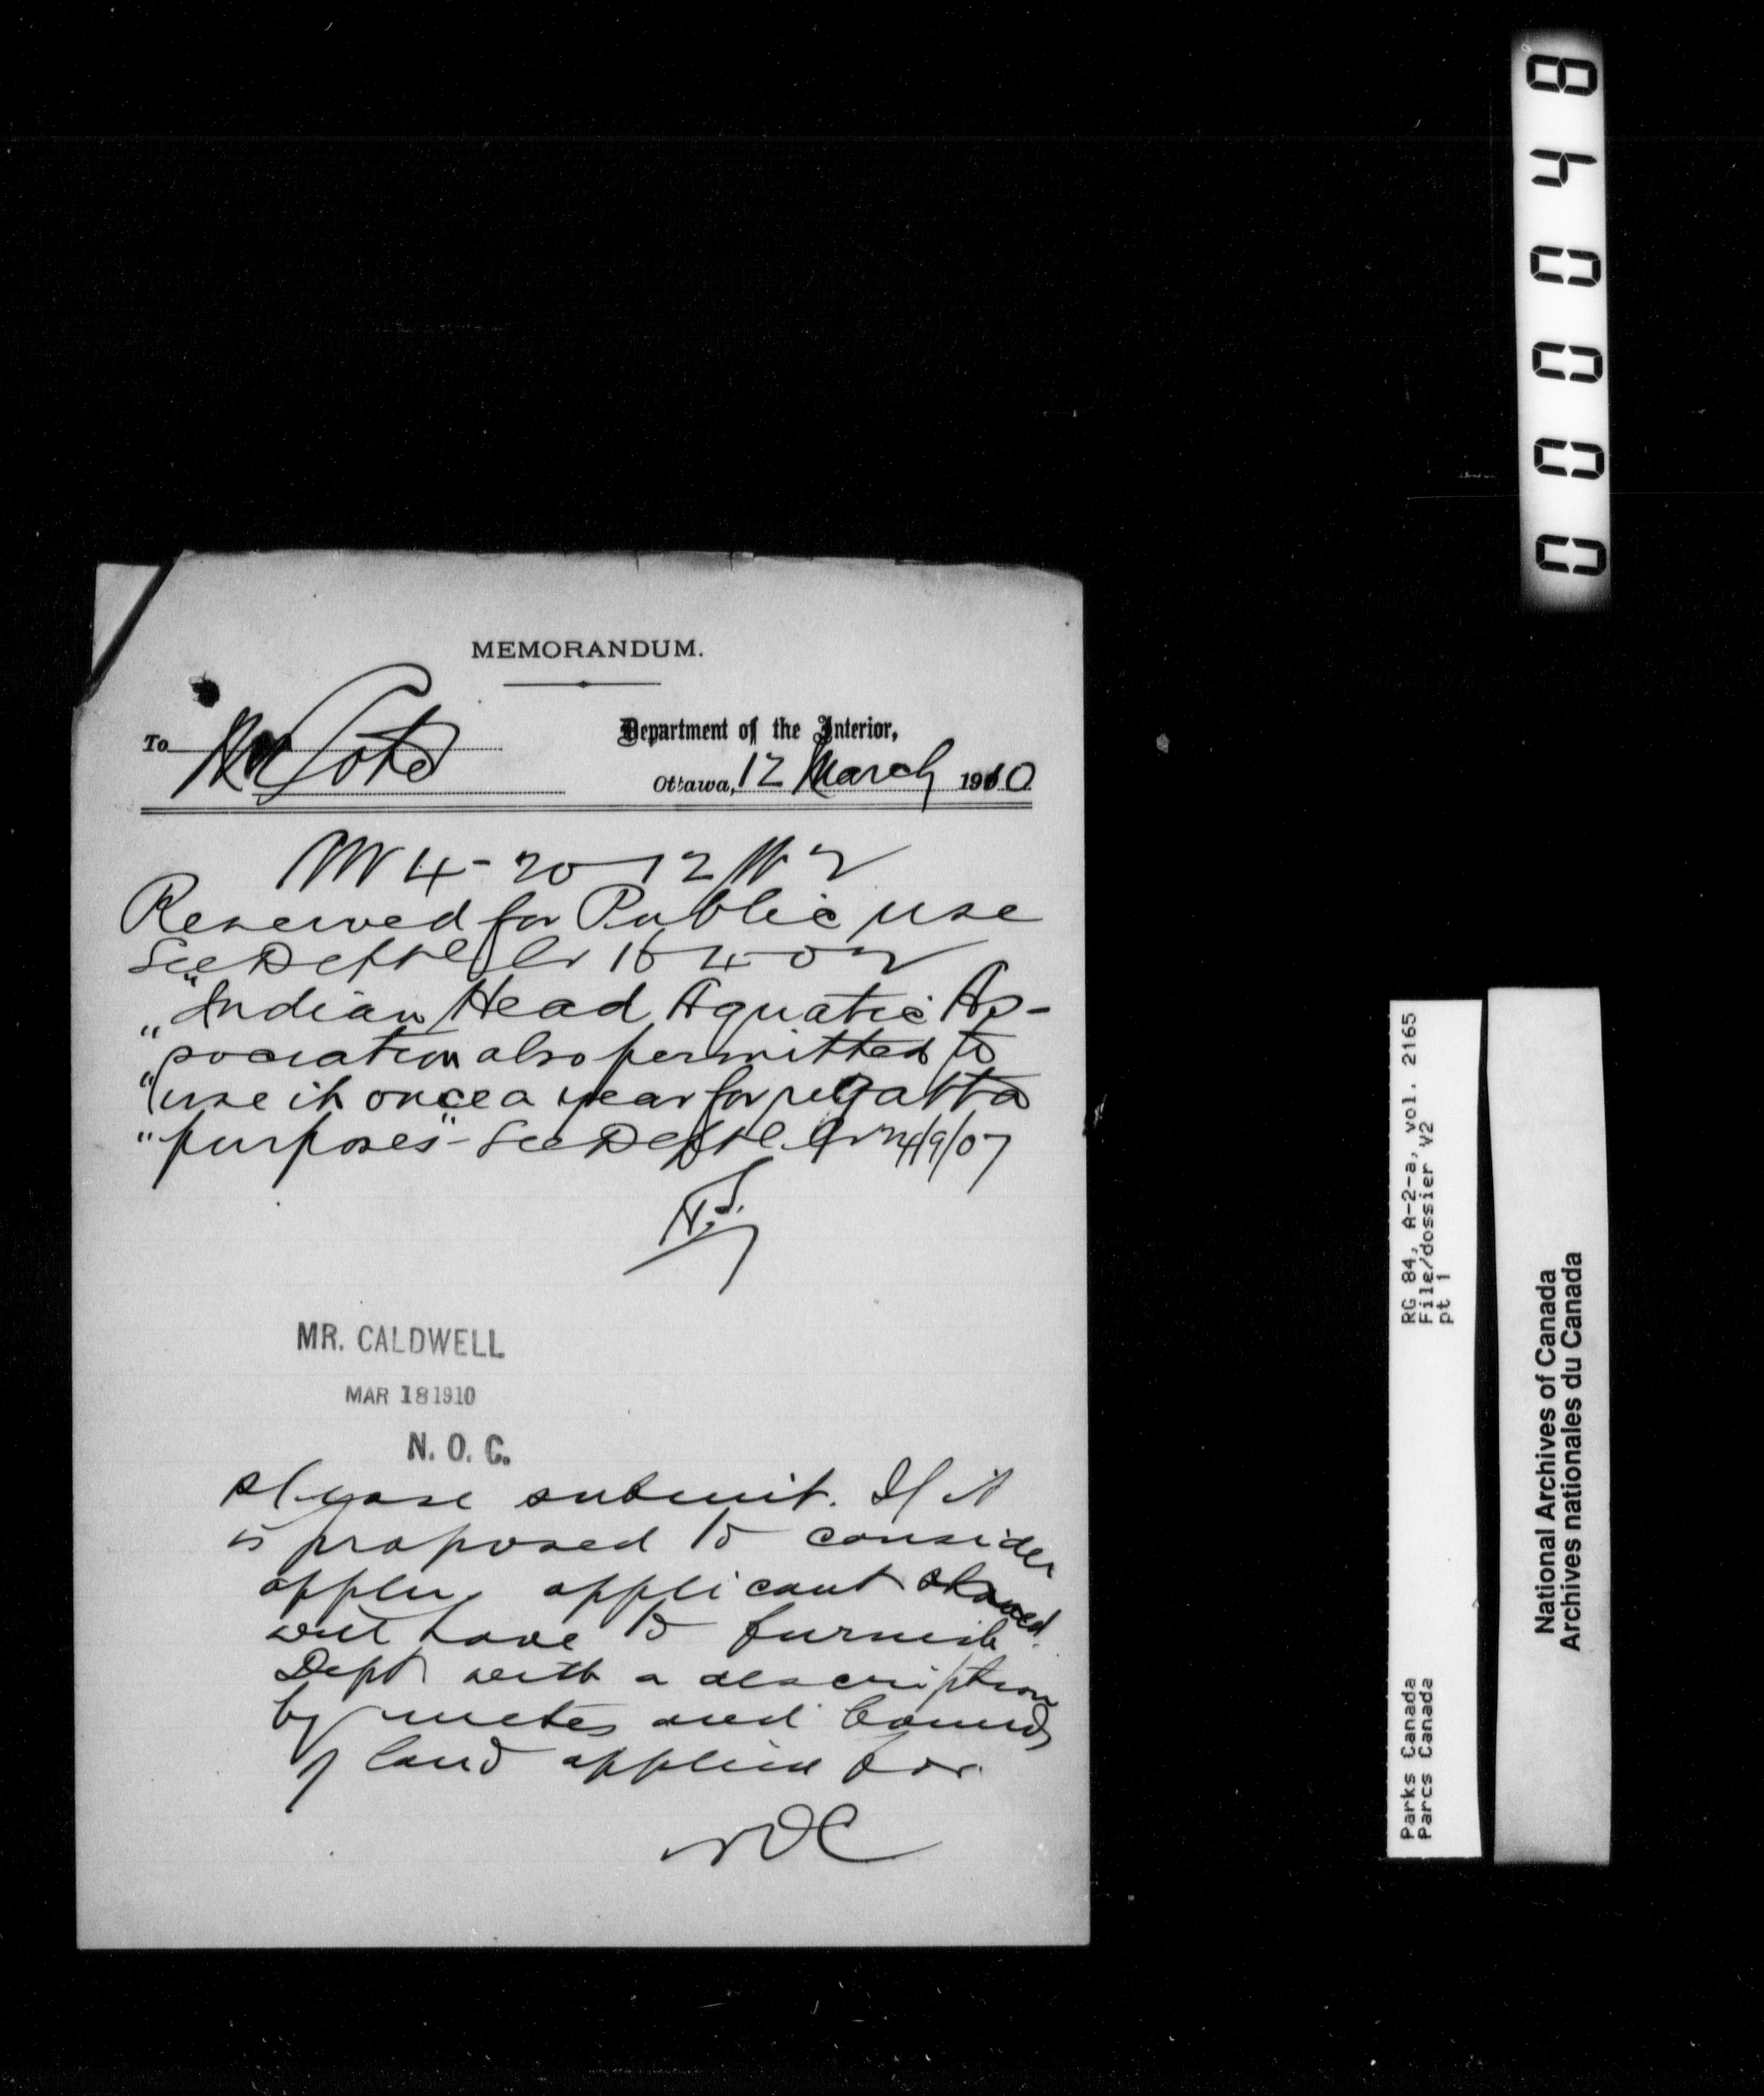 MEMORANDUM.
To Mr Coté
Department of the Interior,
Ottawa, 12 March 1910
NW 4-20-12 W2
Reserved for Public use
See Deptl
"Indian Head Aquatic As-
"sociation also permitted to
"use it once a year for regatta
"purposes" - See Deptl. 4/9/07
MR. CALDWELL
MAR 18 1910
N. O. C.
Please submit. If it
is proposed to consider
appln, applicant
will have to furnish
Dept with a description
by metes and bounds
of land applied for.
NOC
000048
RG 84, A-2-a, vol. 2165
File/dossier V2
pt 1
Parks Canada
Parcs Canada
National Archives of Canada
Archives nationales du Canada